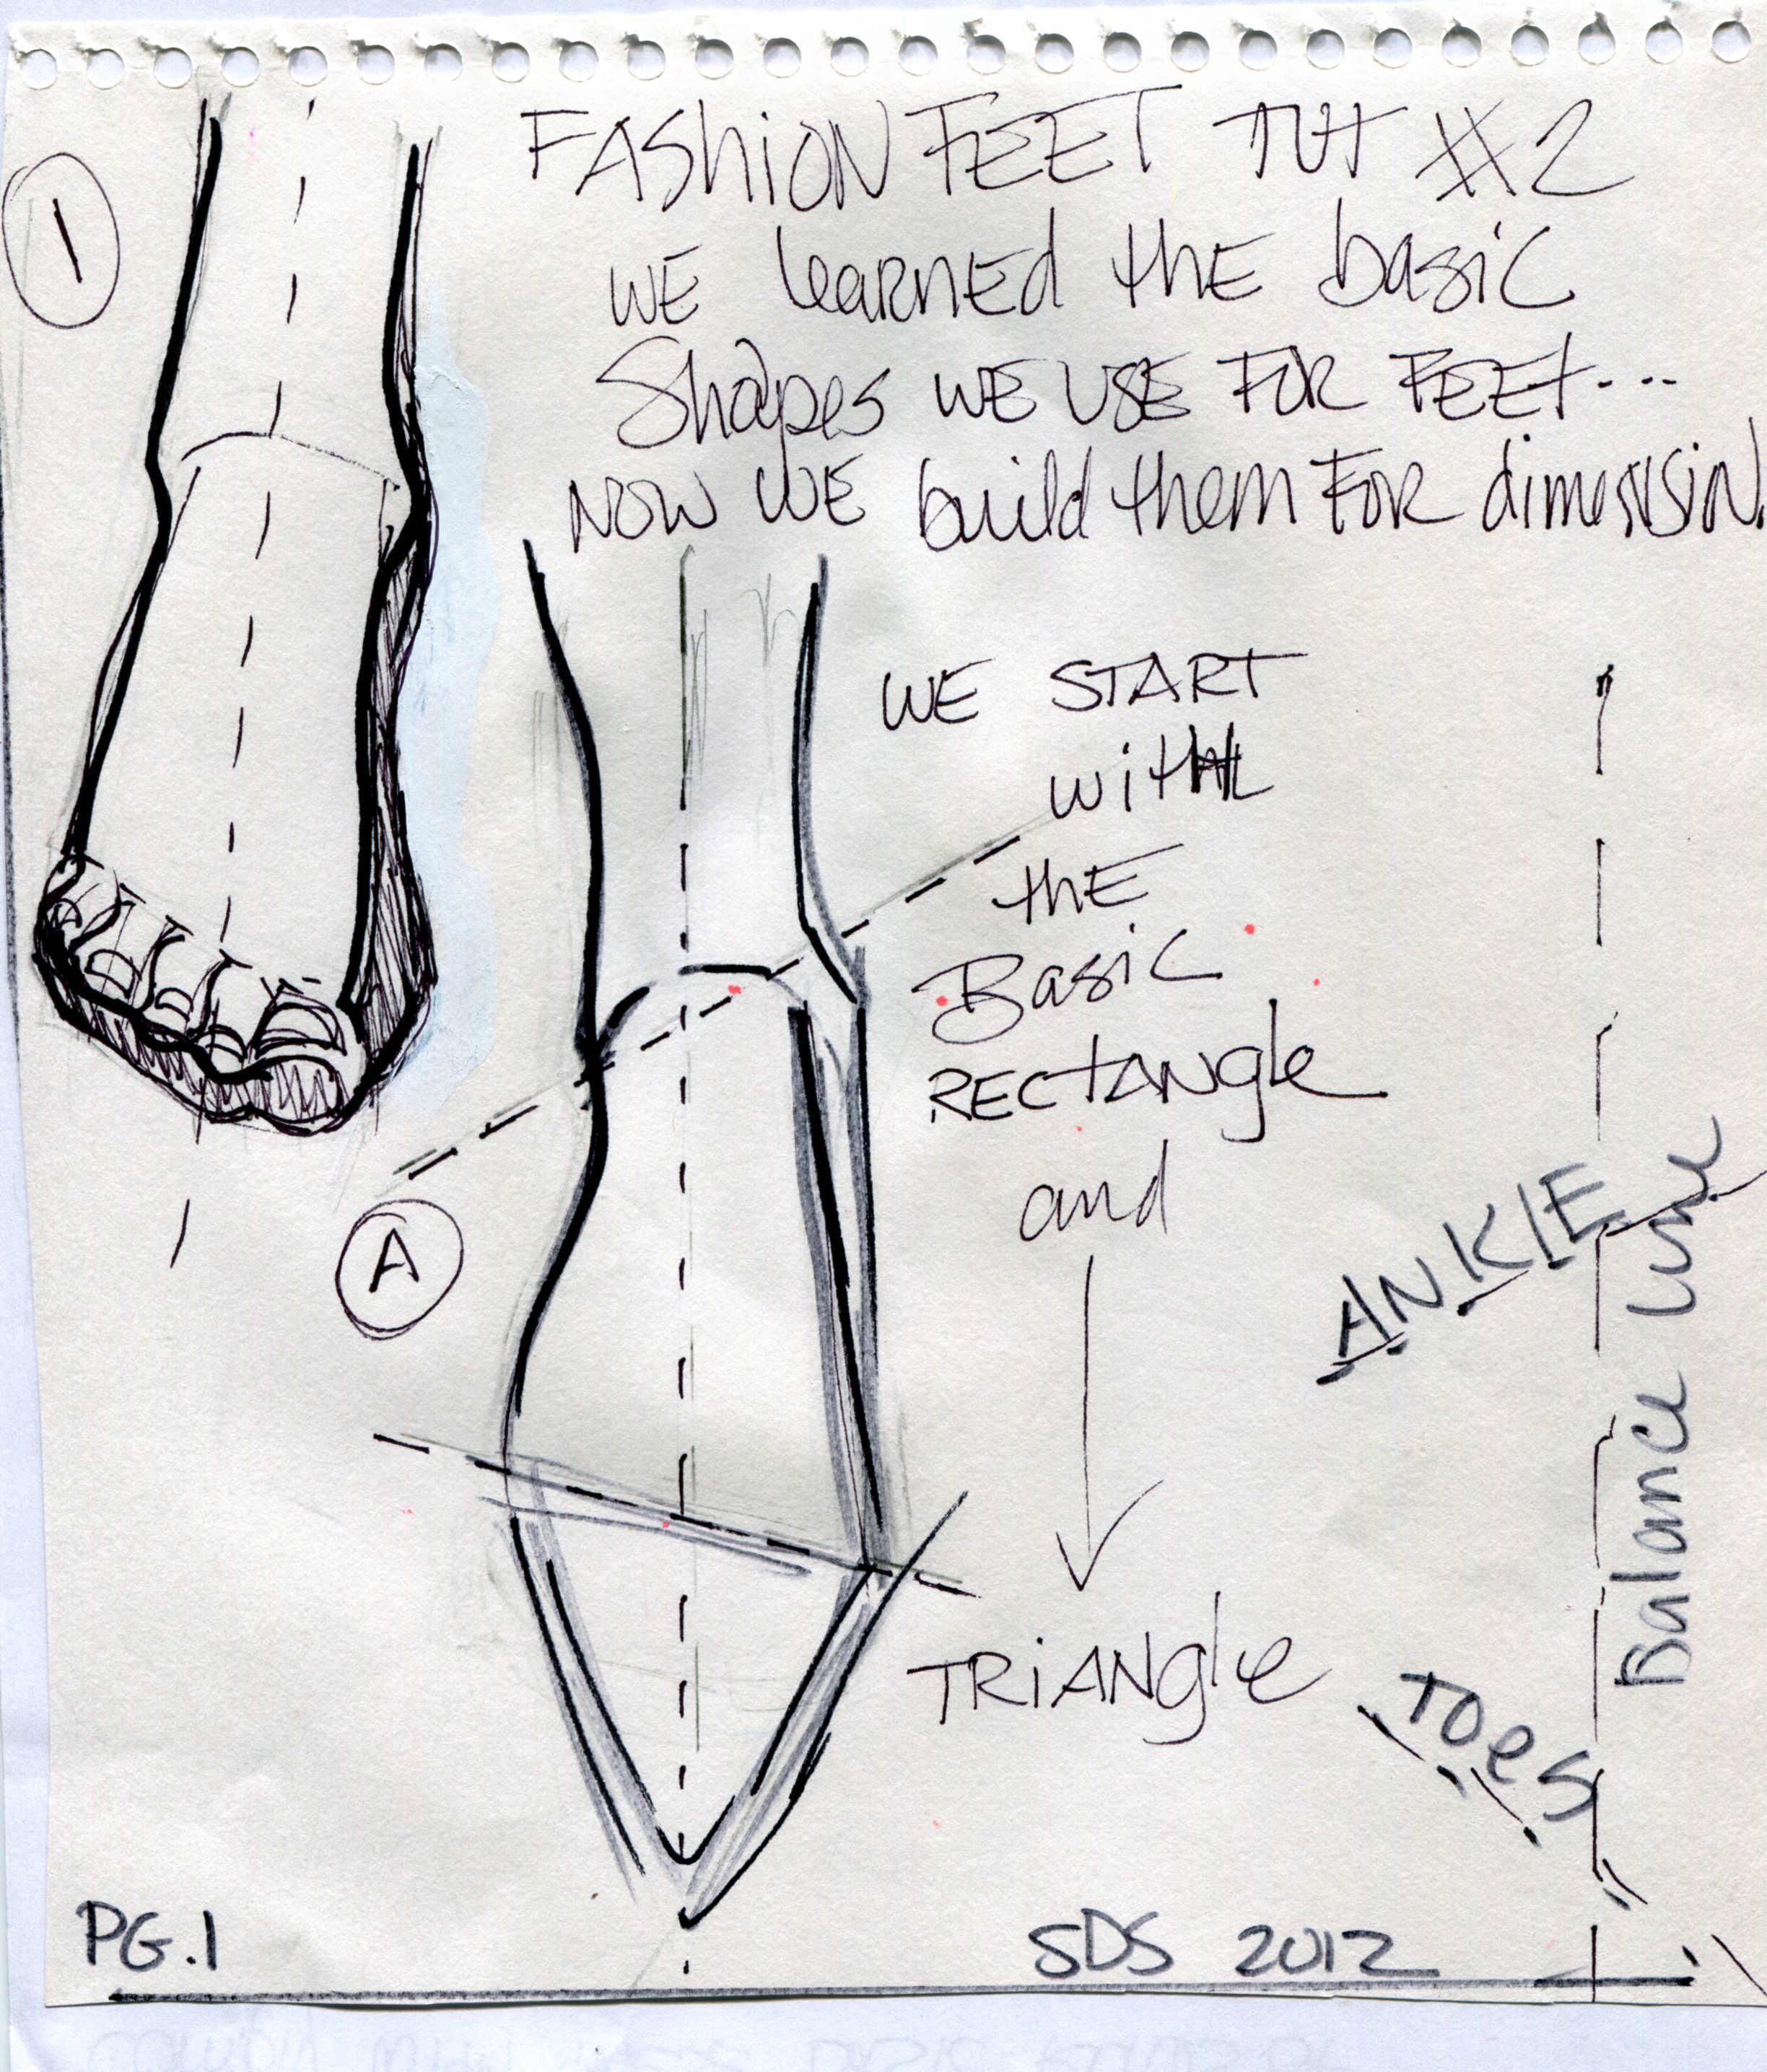 1
FASHION FEET TUT #2
WE learned the basic
Shapes WE USE FOR FEET...
NOW WE build them FOR dimension.
WE START
with
the
Basic
RECTANGle
and
A
ANKLE
Balance Line
TRiANgle
Toes
PG.1
SDS 2012